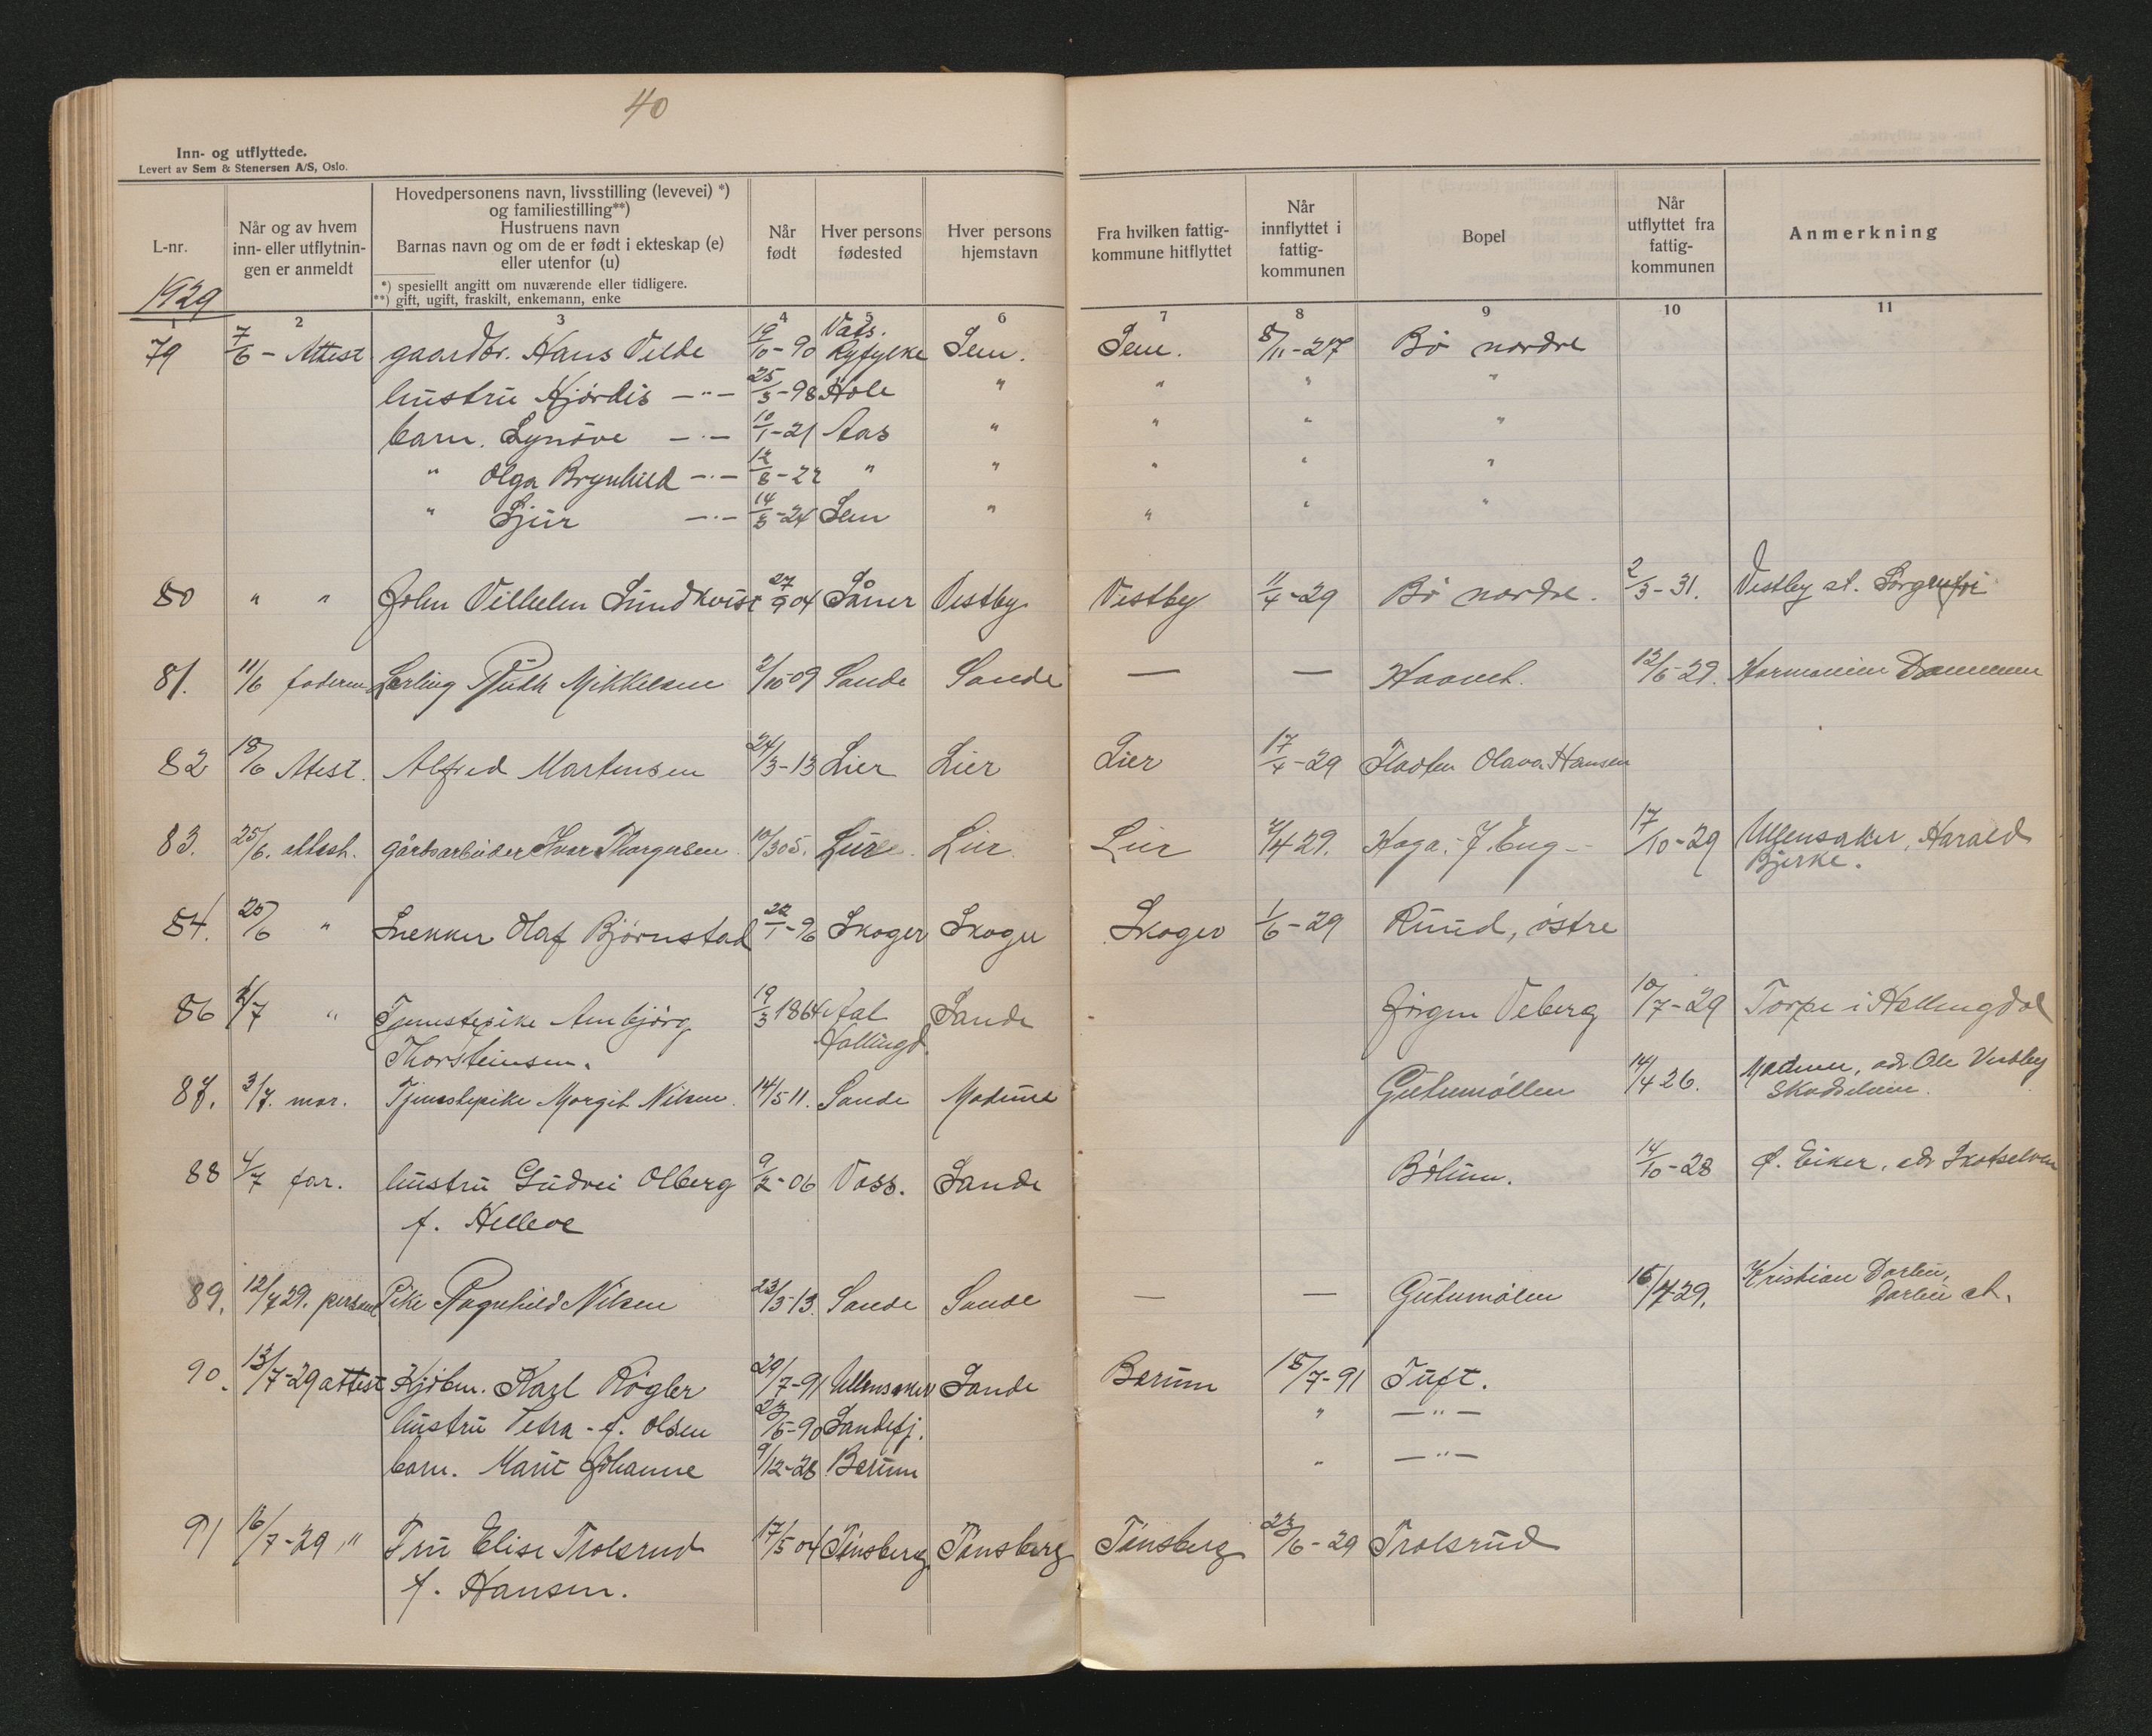 40
Inn- og utflyttede.
Levert av Sem & Stenersen A/S, Oslo.
L-nr.
1929
Når og av hvem
inn- eller utflytnin-
gen er anmeldt
Hovedpersonens navn, livsstilling (levevei) *)
og familiestilling**)
Hustruens navn
Barnas navn og om de er født i ekteskap (e)
eller utenfor (u)
*) spesiellt angitt om nuværende eller tidligere.
**) gift, ugift, fraskilt, enkemann, enke
Når
født
Hver persons
fødested
Hver persons
hjemstavn
Fra hvilken fattig-
kommune hitflyttet
Når
innflyttet i
fattig-
kommunen
Bopel
Når
utflyttet fra
fattig-
kommunen
Anmerkning
1 2 3 4 5 6 7 8 9 10 11
79 7/6 - Attest gaardbr. Hans Velde 19/10-90 Vats. Ryfylke Sem. Sem. 8/11-27 Bö nordre
hustru Hjørdis -"- 25/3-98 Hole " " " "
barn. Synöve -"- 10/1-21 Aas " " " "
" Olga Brynhild -"- 12/8-22 " " " " "
" Sjur -"- 14/3-24 Sem " " " "
80 " " John Vilhelm Sundkvist 27/9 04 Såner Vestby Vestby 11/4-29 Bö nordre. 2/3-31. Vestby st. Sorgenfri
81. 11/6 faderen Lærling Ruth Mikkelsen 2/10-09 Sande Sande — — Haavet. 12/6-29. Harmonien Drammen
82 18/6 Attest. Alfred Martensen 24/3-13 Lier Lier Lier 17/4-29 Olava Hansen
83. 25/6. attest. gårdsarbeider Ivar Thorgersen 10/3 05. Lier Lier 2/4 29. Haga. J. Eng - 17/10-29 Ullensaker, Harald
Bjerke.
84. 25/6 " Snekker Olaf Björnstad 22/1-96 Skoger Skoger Skoger 1/6-29 Ruud, östre
86 2/7 " Tjenestepike Ambjörg 19/3 1864 Aal Sande Jörgen Veberg 10/7-29 Torpe i Hallingdal
Thorsteinsen. Hallingd.
87. 3/7. mor. Tjenestepike Margit Nilsen. 14/5 11. Sande Modum Gutumöllen 14/4 26. Modum, adr Ole Vestby
88 4/7 far. hustru Gudvei Olberg 9/2-06 Voss. Sande Bölum. 14/10-28 Ø. Eiker, adr Skotselven
f. Helleve
89. 12/7 29. personl Pike Ragnhild Nilsen 23/3-13. Sande Sande — — Gutumölen 15/7-29. Kristian Darbu,
Darbu st.
90. 13/7-29 attest Kjöbm. Karl Rögler 29/7-91 Ullensaker Sande Bærum 15/7-91 Tuft.
hustru Petra - f. Olsen 23/5-90 Sandefj. " -"-
barn. Marit Johanne 9/12-28 Bærum " -"-
91 16/7-29 " Fru Elise Trolsrud 17/5 04 Tönsberg Tönsberg Tönsberg 23/6-29 Trolsrud
f. Hansen.